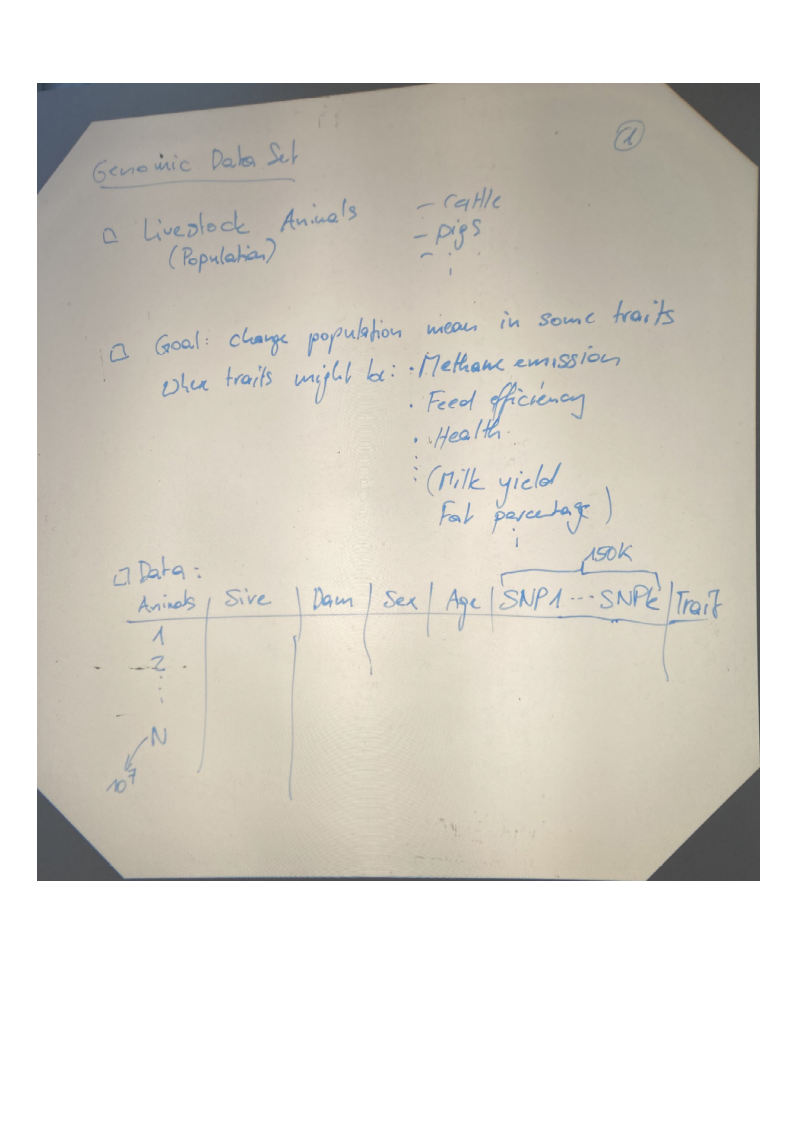 1
Genomic Data Set
□ Livestock Animals
(Population)
- cattle
- pigs
- ⋮
□ Goal: change population mean in some traits
where traits might be: · Methane emission
· Feed efficiency
· Health
⋮ (Milk yield
Fat percentage)
⋮
□ Data:
150K
Animals | Sire | Dam | Sex | Age | SNP1 ... SNPk | Trait
1
2
⋮
N
10^7